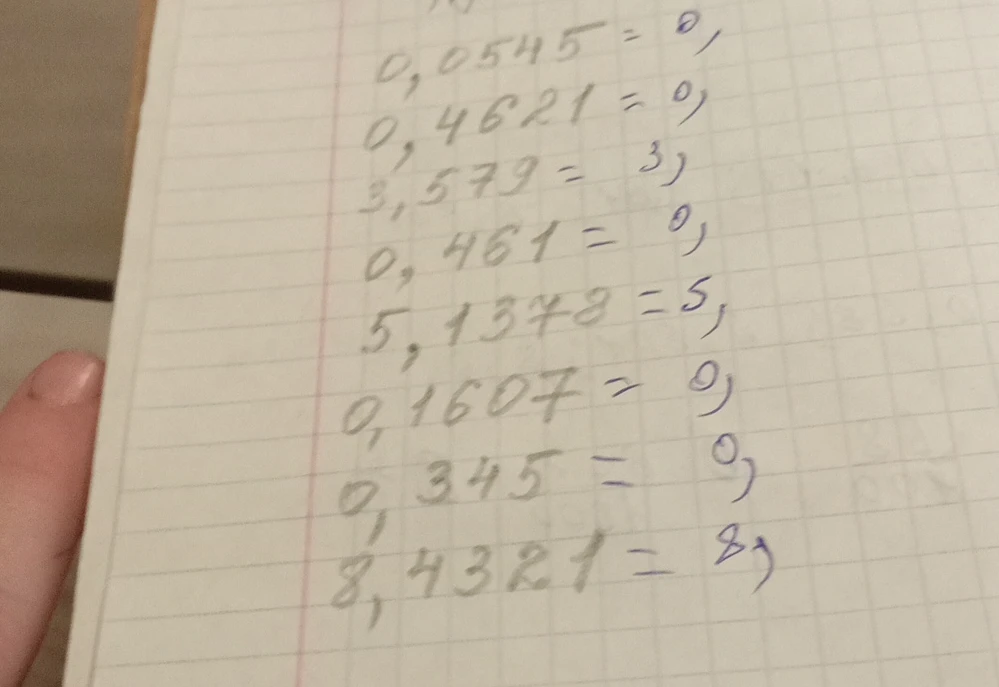 0,0545 = 0,
0,4621 = 0,
3,579 = 3,
0,461 = 0,
5,1378 = 5,
0,1607 = 0,
0,345 = 0,
8,4321 = 8,